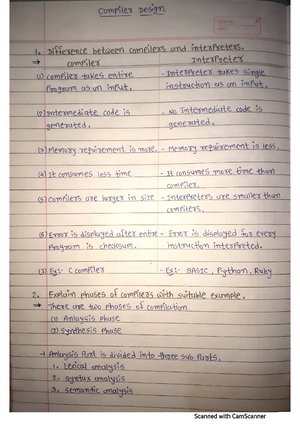 Compiler Design
1. Difference between compilers and interpreters.
→ compiler Interpreter
(1) compiler takes entire - Interpreter takes single
Program as an input. instruction as an input.
(2) Intermediate code is - No Intermediate code is
generated. generated.
(3) Memory requirement is more. - Memory requirement is less.
(4) It consumes less time - It consumes more time than
compiler.
(5) compilers are larger in size - Interpreters are smaller than
compilers.
(6) Error is displayed after entire - Error is displayed for every
Program is checksum. instruction interpreted.
(7) Ex:- C compiler - Ex:- BASIC, Python, Ruby
2. Explain phases of compilers with suitable example.
→ There are two phases of compilation.
(1) Anlaysis Phase
(2) Synthesis Phase
→ Anlaysis Part is divided into three sub Parts,
1. Lexical analysis
2. syntax analysis
3. semantic analysis
Scanned with CamScanner